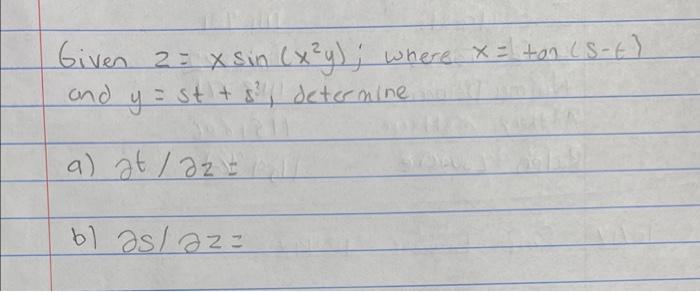 Given z = x sin (x²y); where x = tan (s-t)
and y = st + s², determine
a) ∂t / ∂z =
b) ∂s / ∂z =